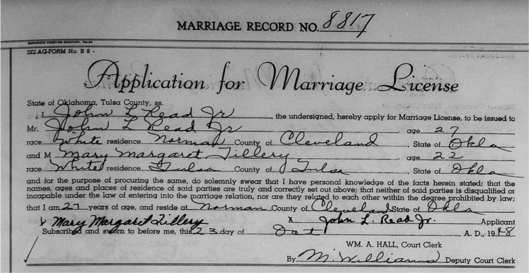 MARRIAGE RECORD NO. 8817
SIG-AG-FORM No. B 5 -
Application for Marriage License
State of Oklahoma, Tulsa County, ss.
I, John L Read Jr the undersigned, hereby apply for Marriage License, to be issued to
Mr. John L Read Jr age 27
race White residence Norman County of Cleveland, State of Okla
and M Mary Margaret Tillery age 22
race White residence Tulsa County of Tulsa, State of Okla
and for the purpose of procuring the same, do solemnly swear that I have personal knowledge of the facts herein stated; that the
names, ages and places of residence of said parties are truly and correctly set out above; that neither of said parties is disqualified or
incapable under the law of entering into the marriage relation, nor are they related to each other within the degree prohibited by law;
that I am 27 years of age, and reside at Norman County of Cleveland State of Okla
x Mary Margaret Tillery X John L. Read Jr. Applicant
Subscribed and sworn to before me, this 23 day of Oct A. D., 1948
WM. A. HALL, Court Clerk
By M. Williams Deputy Court Clerk